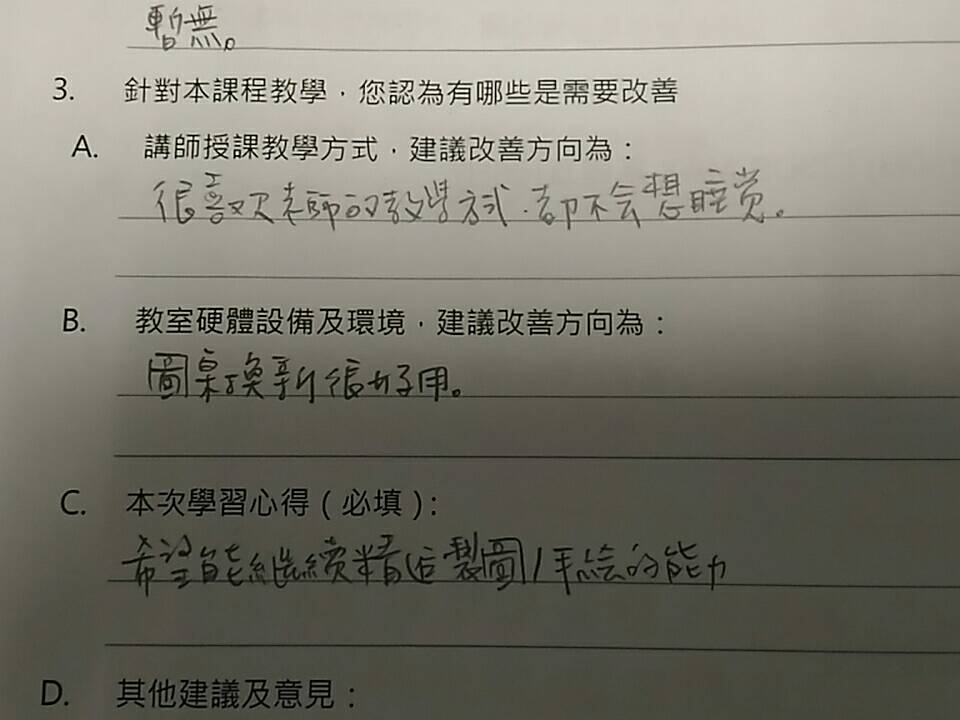 暫無。
3. 針對本課程教學，您認為有哪些是需要改善
A. 講師授課教學方式，建議改善方向為：
很喜欢老師的教學方式，都不会想睡覚。
B. 教室硬體設備及環境，建議改善方向為：
圖桌換新很好用。
C. 本次學習心得（必填）：
希望能繼續精進製圖/手繪的能力
D. 其他建議及意見：